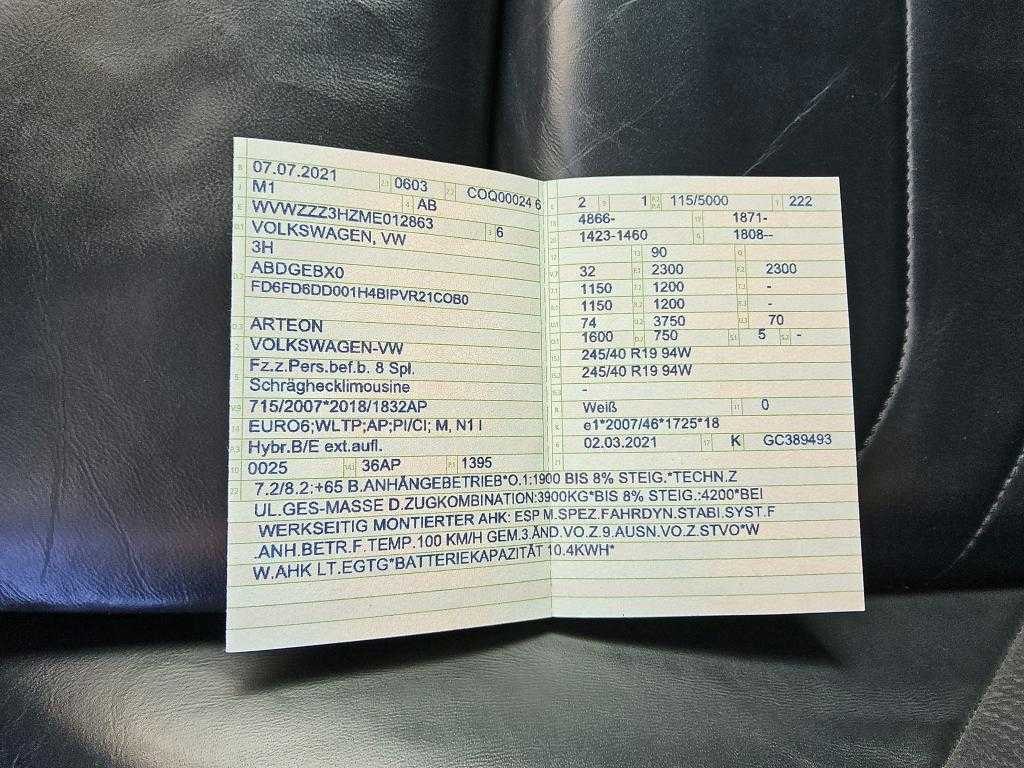 07.07.2021 0603 COQ00024 6
M1 AB
WVWZZZ3HZME012863 6
VOLKSWAGEN, VW
3H
ABDGEBX0
FD6FD6DD001H4BIPVR21COB0
ARTEON
VOLKSWAGEN-VW
Fz.z.Pers.bef.b. 8 Spl.
Schräghecklimousine
715/2007*2018/1832AP
EURO6;WLTP;AP;PI/CI; M, N1 I
Hybr.B/E ext.aufl.
0025 36AP 1395
2 1 115/5000 222
4866- 1871-
1423-1460 1808--
90
32 2300 2300
1150 1200 -
1150 1200 -
74 3750 70
1600 750 5 -
245/40 R19 94W
245/40 R19 94W
-
Weiß 0
e1*2007/46*1725*18
02.03.2021 K GC389493
7.2/8.2;+65 B.ANHÄNGEBETRIEB*O.1:1900 BIS 8% STEIG.*TECHN.Z
UL.GES-MASSE D.ZUGKOMBINATION:3900KG*BIS 8% STEIG.:4200*BEI
WERKSEITIG MONTIERTER AHK: ESP M.SPEZ.FAHRDYN.STABI.SYST.F
.ANH.BETR.F.TEMP.100 KM/H GEM.3.ÄND.VO.Z.9.AUSN.VO.Z.STVO*W
W.AHK LT.EGTG*BATTERIEKAPAZITÄT 10.4KWH*